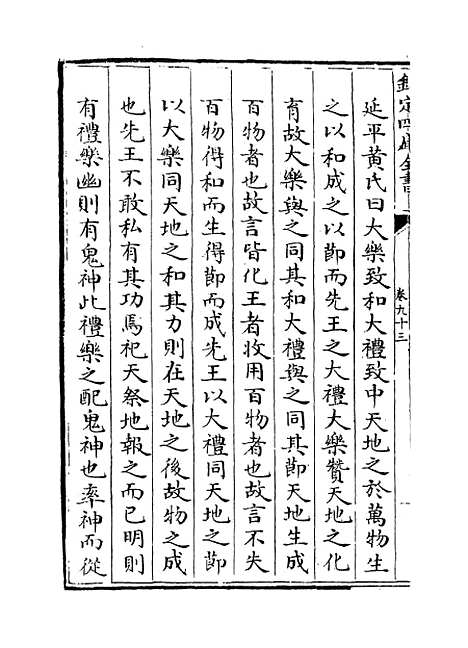 欽定四庫全書
卷九十三
延平黄氏曰大樂致和大禮致中天地之於萬物生
之以和成之以節而先王之大禮大樂贊天地之化
育故大樂與之同其和大禮與之同其節天地生成
百物者也故言皆化王者收用百物者也故言不失
百物得和而生得節而成先王以大禮同天地之節
以大樂同天地之和其力則在天地之後故物之成
也先王不敢私有其功焉祀天祭地報之而已明則
有禮樂幽則有鬼神此禮樂之配鬼神也率神而從